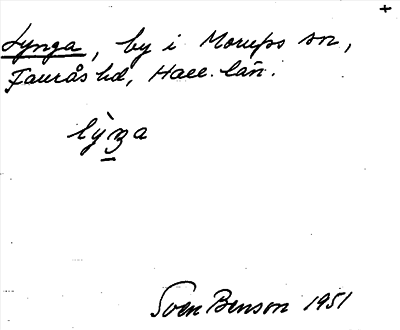 +
Lynga, by i Morups sn,
Faurås hd, Hall. län.
Sven Benson 1951